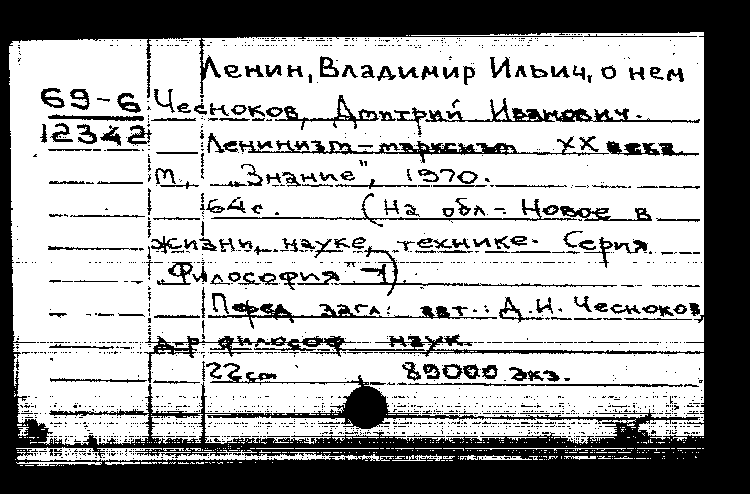 Ленин, Владимир Ильич, о нем
69-6 Чесноков, Дмитрий Иванович.
12342 Ленинизм-марксизм XX века
М., "Знание", 1970.
64 с. (На обл.- Новое в
жизни, науке, технике. Серия
"Философия" -1)
Перед загл.: авт.: Д.И. Чесноков,
д-р философ наук.
22 cm 89000 экз.